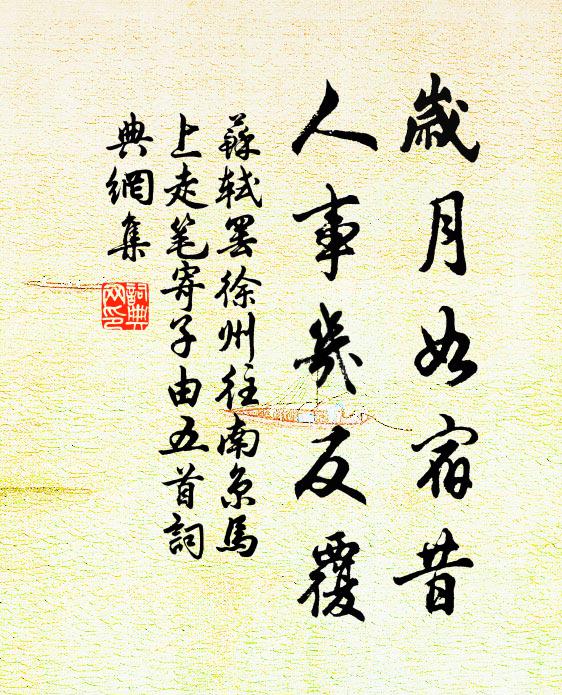 歲月如宿昔
人事幾反覆
蘇軾罷徐州往南京馬
上走筆寄子由五首詞
典網集
詞典
网印